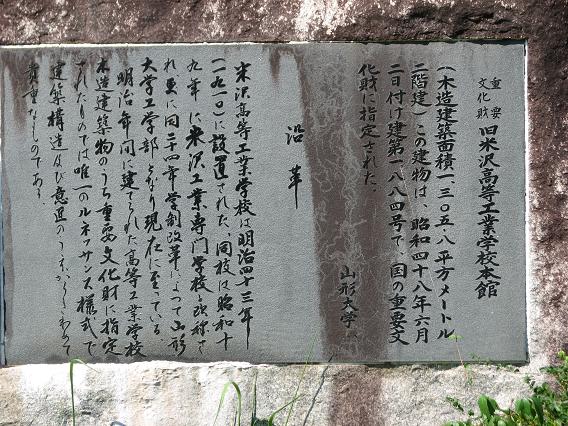 重要文化財 旧米沢高等工業学校本館
(木造建築面積一、三〇五・八平方メートル
二階建)この建物は、昭和四十八年六月
二日付け建第一八八四号で、国の重要文
化財に指定された。
山形大学
沿革
米沢高等工業学校は明治四十三年
(一九一〇)に設置された、同校は昭和十
九年に米沢工業専門学校と改称さ
れ更に同二十四年学制改革によつて山形
大学工学部となり現在に至つている。
明治年間に建てられた高等工業学校
木造建築物のうち重要文化財に指定
されたものでは唯一のルネッサンス様式で
建築構造及び意匠のうえからもきわめて
貴重なものである